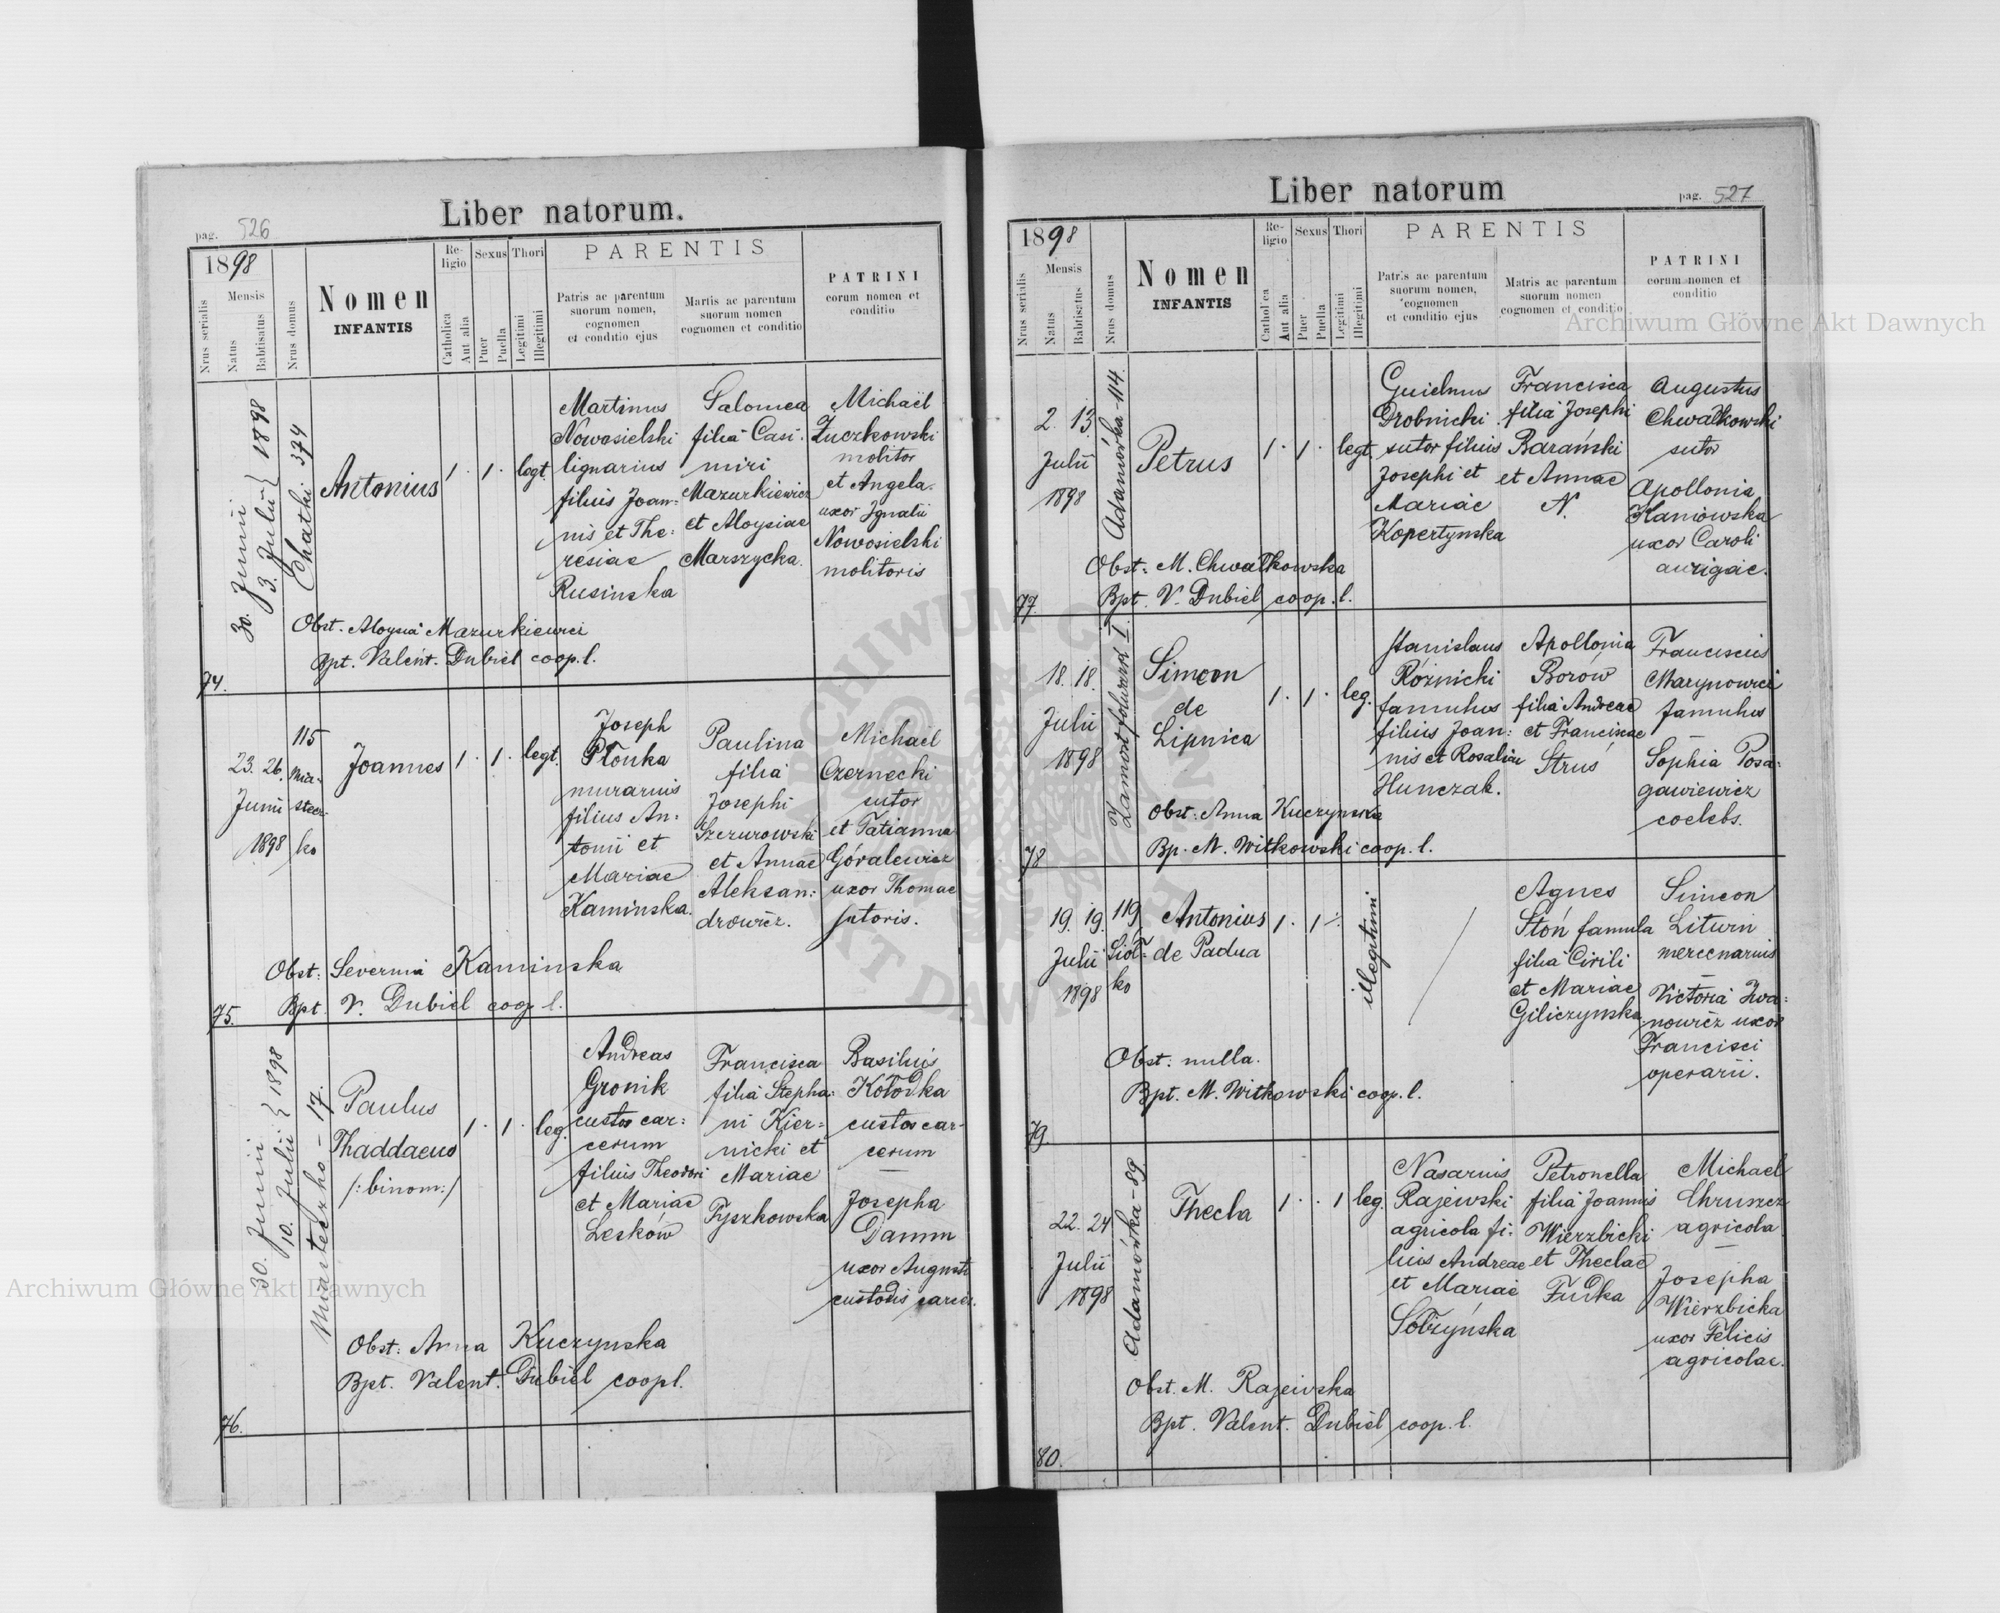 Liber natorum.
pag. 526
1898
Nrus serialis
Mensis
Natus
Babtisatus
Nrus domus
Nomen
INFANTIS
Religio
Catholica
Aut alia
Sexus
Puer
Puella
Thori
Legitimi
Illegitimi
PARENTIS
Patris ac parentum
suorum nomen,
cognomen
et conditio ejus
Martis ac parentum
suorum nomen
cognomen et conditio
PATRINI
eorum nomen et
conditio
30. Junii
3. Julii } 1898
Chatki 374
Antonius
1. 1. legt.
Martinus
Nowosielski
lignarius
filius Joan=
nis et The=
resiae
Rusinska
Salomea
filia Casi=
miri
Mazurkiewicz
et Aloysiae
Marszycka.
Michaël
Żuczkowski
molitor
et Angela
uxor Ignatii
Nowosielski
molitoris
Obst. Aloysia Mazurkiewicz
Bpt. Valent. Dubiel coop. l.
74.
23. 26.
Junii
1898
115
Mia=
stecz=
ko
Joannes
1. 1. legt.
Joseph
Płonka
murarius
filius An=
tonii et
Mariae
Kaminska.
Paulina
filia
Josephi
Szczurowski
et Annae
Aleksan=
drowicz.
Michael
Czernecki
sutor
et Tatianna
Góralewicz
uxor Thomae
sutoris.
Obst: Severina Kaminska
Bpt. V. Dubiel coop. l.
75.
30. Junii
10. Julii } 1898
Miasteczko – 17.
Paulus
Thaddaeus
/:binom:/
1. 1. leg.
Andreas
Gronik
custos car=
cerum
filius Theodori
et Mariae
Leskow
Francisca
filia Stepha=
ni Kier=
nicki et
Mariae
Tyszkowska
Basilius
Kołodka
custos car-
cerum
Josepha
Damm
uxor Augusti
custodis carcer.
Obst: Anna Kuczynska
Bpt. Valent. Dubiel coop l.
76.
Liber natorum
pag. 527
1898
Nrus serialis
Mensis
Natus
Babtisatus
Nrus domus
Nomen
INFANTIS
Religio
Cathol'ca
Aut alia
Sexus
Puer
Puella
Thori
Legitimi
Illegitimi
PARENTIS
Patris ac parentum
suorum nomen,
cognomen
et conditio ejus
Matris ac parentum
suorum nomen
cognomen et conditio
PATRINI
eorum nomen et
conditio
2. 13.
Julii
1898
Adamówka – 114.
Petrus
1. 1. legt.
Guielmus
Drobnicki
sutor filius
Josephi et
Mariae
Kopertynska
Francisca
filia Josephi
Barański
et Annae
N.
Augustus
Chwałkowski
sutor
Apollonia
Kaniowska
uxor Caroli
aurigae.
Obst: M. Chwałkowska
Bpt. V. Dubiel coop. l.
77.
18. 18.
Julii
1898
Zamost folwark 1.
Simeon
de
Lipnica
1. 1. leg.
Stanislaus
Różnicki
famulus
filius Joan=
nis et Rosaliae
Hunczak.
Apollonia
Borów
filia Andreae
et Franciscae
Struś
Franciscus
Marynowicz
famulus
Sophia Posa=
gawiewicz
coelebs.
Obst: Anna Kuczynska
Bp. M. Witkowski coop. l.
78.
19. 19.
Julii
1898
119
Siół=
ko
Antonius
de Padua
1. 1.
illegitimi
Agnes
Stoń famula
filia Cirili
et Mariae
Giliczynska
Simeon
Litwin
mercenarius
Victoria Iwa=
nowicz uxor
Francisci
operarii.
Obst: nulla.
Bpt. M. Witkowski coop. l.
79.
22. 24
Julii
1898
Adamówka – 89.
Thecla
1. 1 leg.
Nasarius
Rajewski
agricola fi=
lius Andreae
et Mariae
Sobzyńska
Petronella
filia Joannis
Wierzbicki
et Theclae
Fudka
Michael
Chruszcz
agricola
Josepha
Wierzbicka
uxor Felicis
agricolae.
Obst. M. Rajewska
Bpt. Valent. Dubiel coop. l.
80.
Archiwum Główne Akt Dawnych
Archiwum Główne Akt Dawnych
ARCHIWUM GŁÓWNE AKT DAWNYCH